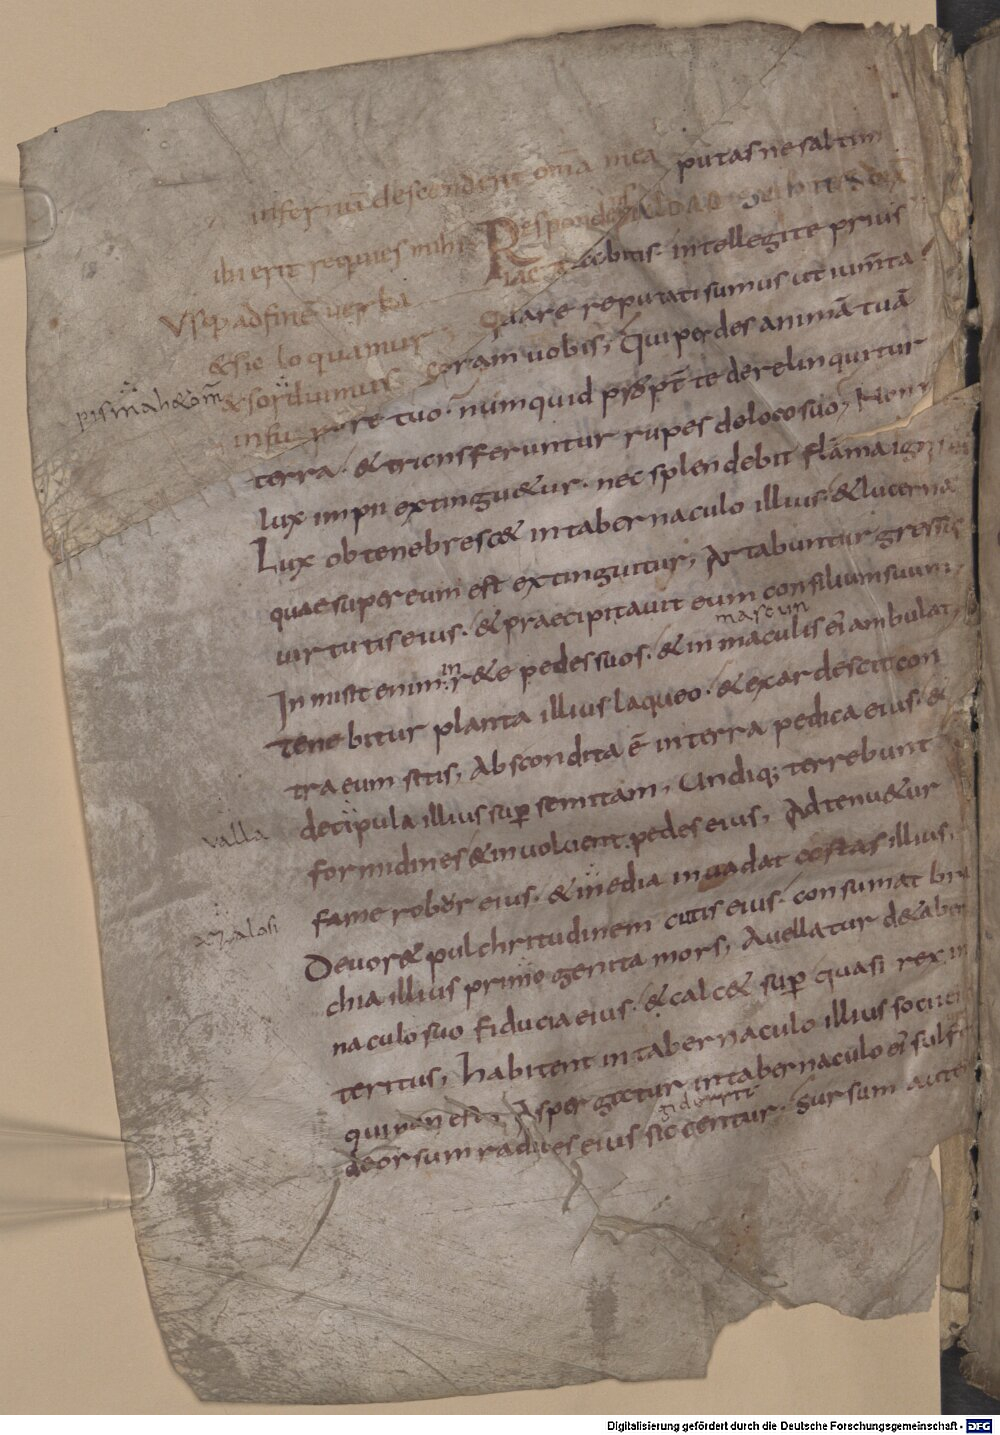 infernū descendent om̄a mea putas ne saltim
ibi erit requies mihi Respondens baldad
Vsq adfinē uerba iactabitis· intellegite prius
& sic loquamur; Quare reputati sumus ut iumta
& sorduimus coram uobis; Qui perdes animā tuā
in fu rore tuo· numquid propt te derelinquitur
terra· & transferuntur rupes de loco suo; Nonn
lux impii extingu&ur· nec splendebit flāma ignis
Lux obtenebresc& in tabernaculo illius· & lucerna
quae super eum est extinguitur; Artabuntur gressus
uirtutis eius· & praecipitauit eum consilium suum;
mascun
Inmisit enim in r&e pedes suos· & in maculis ei ambulat;
Tenebitur planta illius laqueo· & exardescit con
tra eum sitis; Abscondita ē in terra pedica eius· &
decipula illius sup semitam; Undiq; terrebunt
valla
formidines & inuoluent pedes eius; Adtenu&ur
fame robor eius· & inedia inuadat costas illius;
Deuor& pulchritudinem cutis eius· consumat bra
chia illius primogenita mors; Auellatur de taber
naculo suo fiducia eius· & calc& sup quasi rex in
teritus; Habitent in tabernaculo illius socii
qui non est; Aspergatur in tabernaculo ei sulf
deorsum radices eius siccentur· Sursum aute